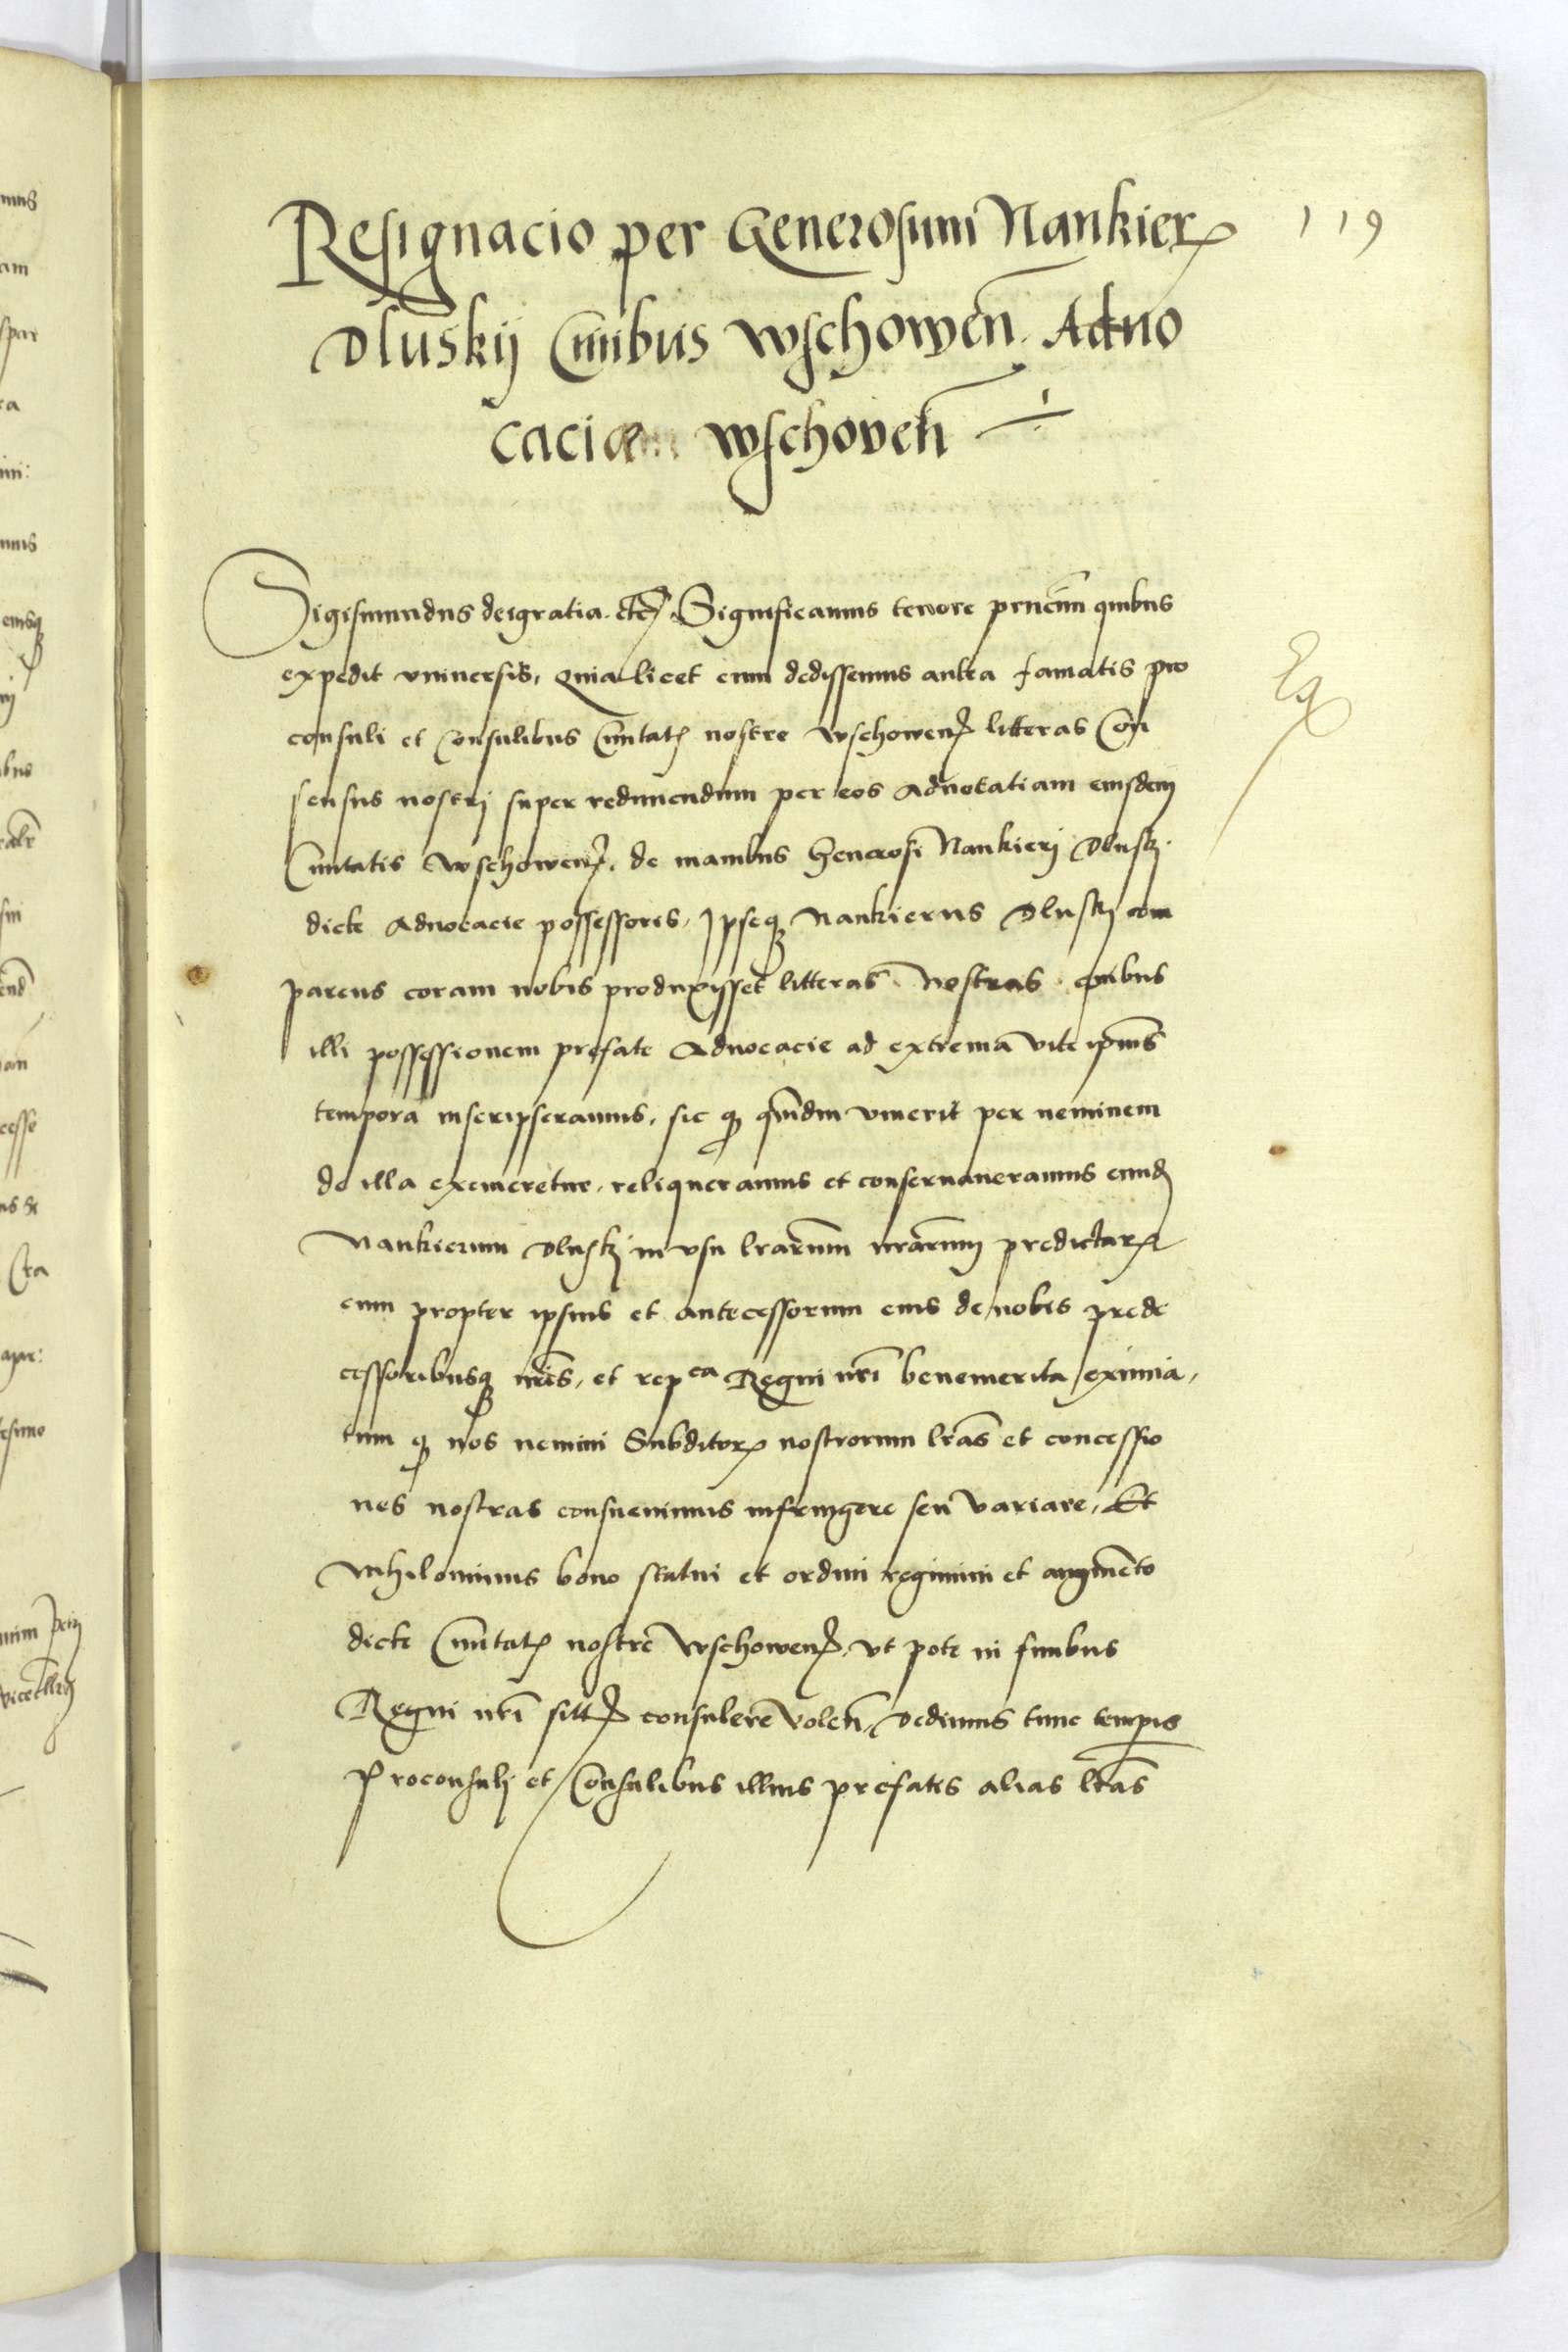 119
Resignacio per Generosum Nankier
Dluskij Ciuibus Wschowen̄. Aduo
cacie Wschoven̄
Sigismundus dei gratia. etc̄. Significamus tenore prn̄cium quibus
expedit vniuersis, Quia licet cum dedissemus antea famatis pro
consuli et Consulibus Ciuitatꝭ nostre Wschowen̄ litteras Con
sensus nostrj super redimendum per eos Aduocatiam eiusdem
Ciuitatis Wschowen̄. de manibus Generosi Nankierj Dluskj.
dicte Aduocacie possessoris, Ipseqꝫ Nankierus Dluskj com
parens coram nobis produxisset litteras Nostras quibus
illi possessionem prefate Aduocacie ad extrema vite ip̄ius
tempora inscripseramus, sic qꝫ qm̄diu vixerit per neminem
de illa exemeretur, reliqueramus et conseruaueramus eund̄
Nankierum Dluskj in vsu lrārum nrārum predictarꝝ
cum propter ipsius et antecessorum eius de nobis prede
cessoribusqꝫ nrīs, et repca Regni nrī benemerita eximia,
tum qꝫ nos nemini Subditorꝝ nostrorum lrās et concessio
nes nostras consueuimus infringere seu variare, Et
Nihilominus bono statui et ordini regimini et augmēto
dicte Ciuitatꝭ nostre Wschowen̄, vt pote in finibus
Regni nrī sitt̄ consulere volen̄, Dedimus tunc temꝑis
Proconsulj et Consulibus illius prefatis alias lrās